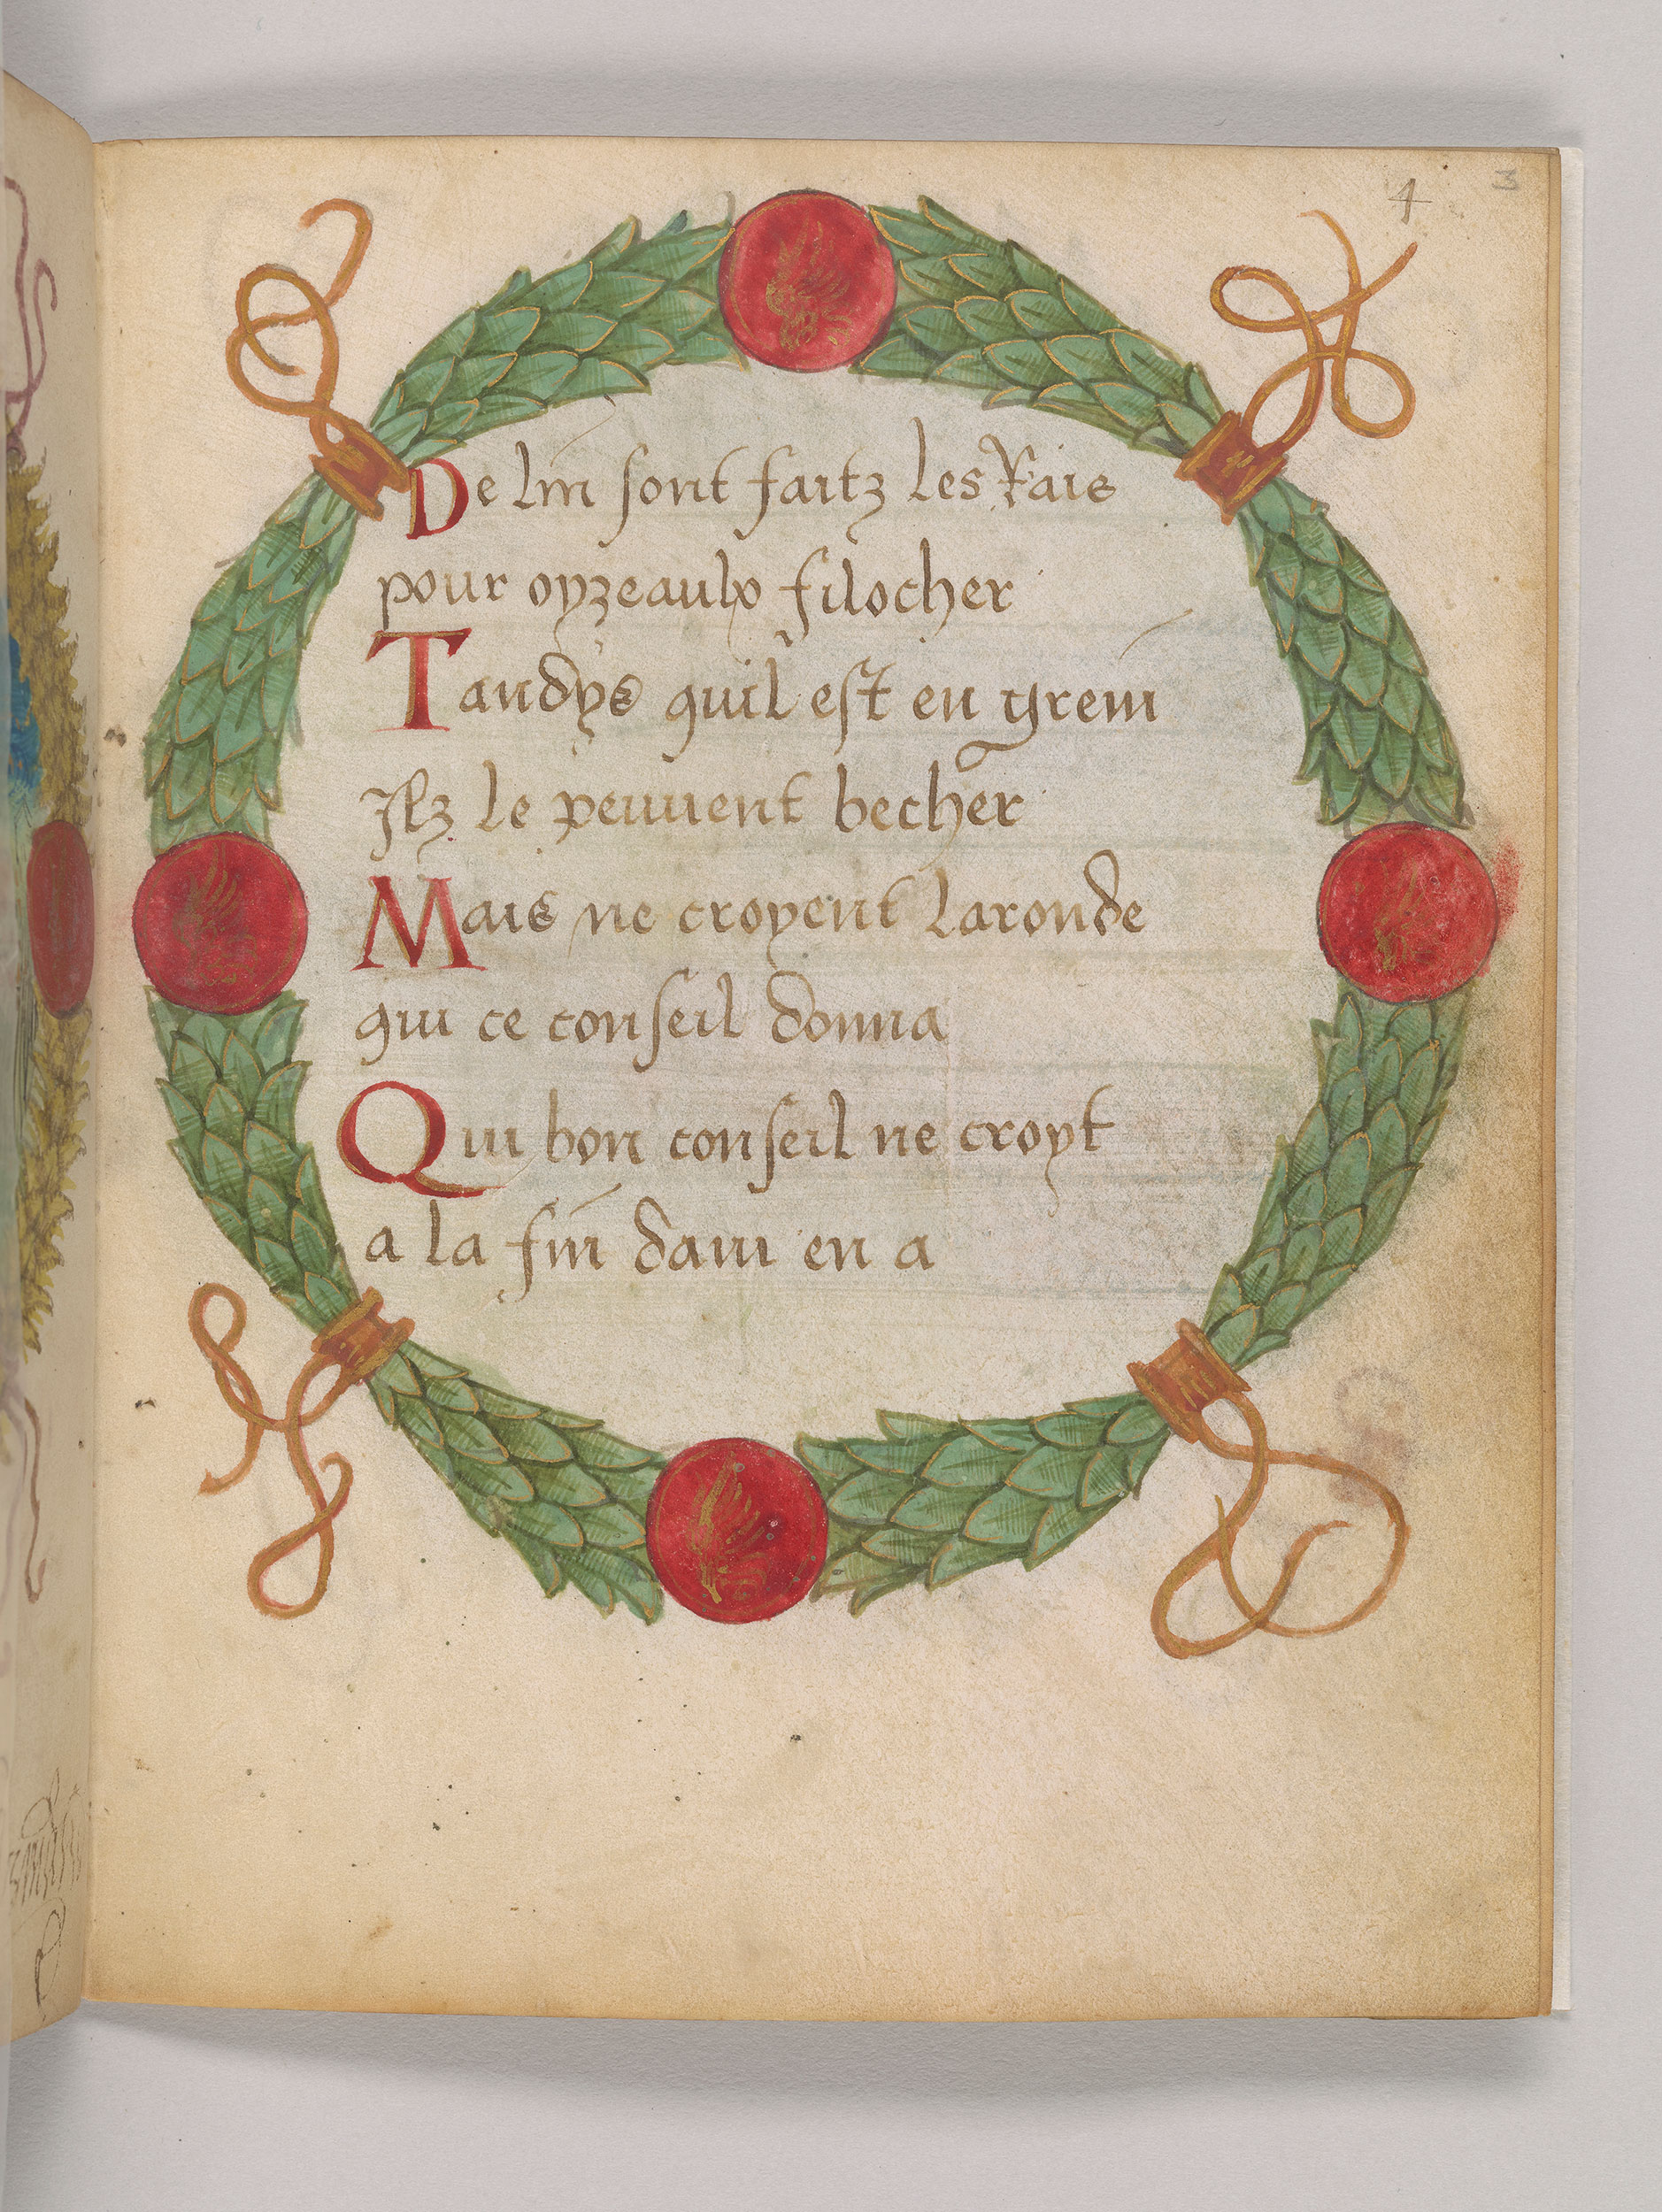 4 3
De lin sont faitz les Rais
pour oyzeaulx filocher
Tandys quil est en grein
Ilz le peuuent becher
Mais ne croyent laronde
qui ce conseil donna
Qui bon conseil ne croyt
a la fin dam en a